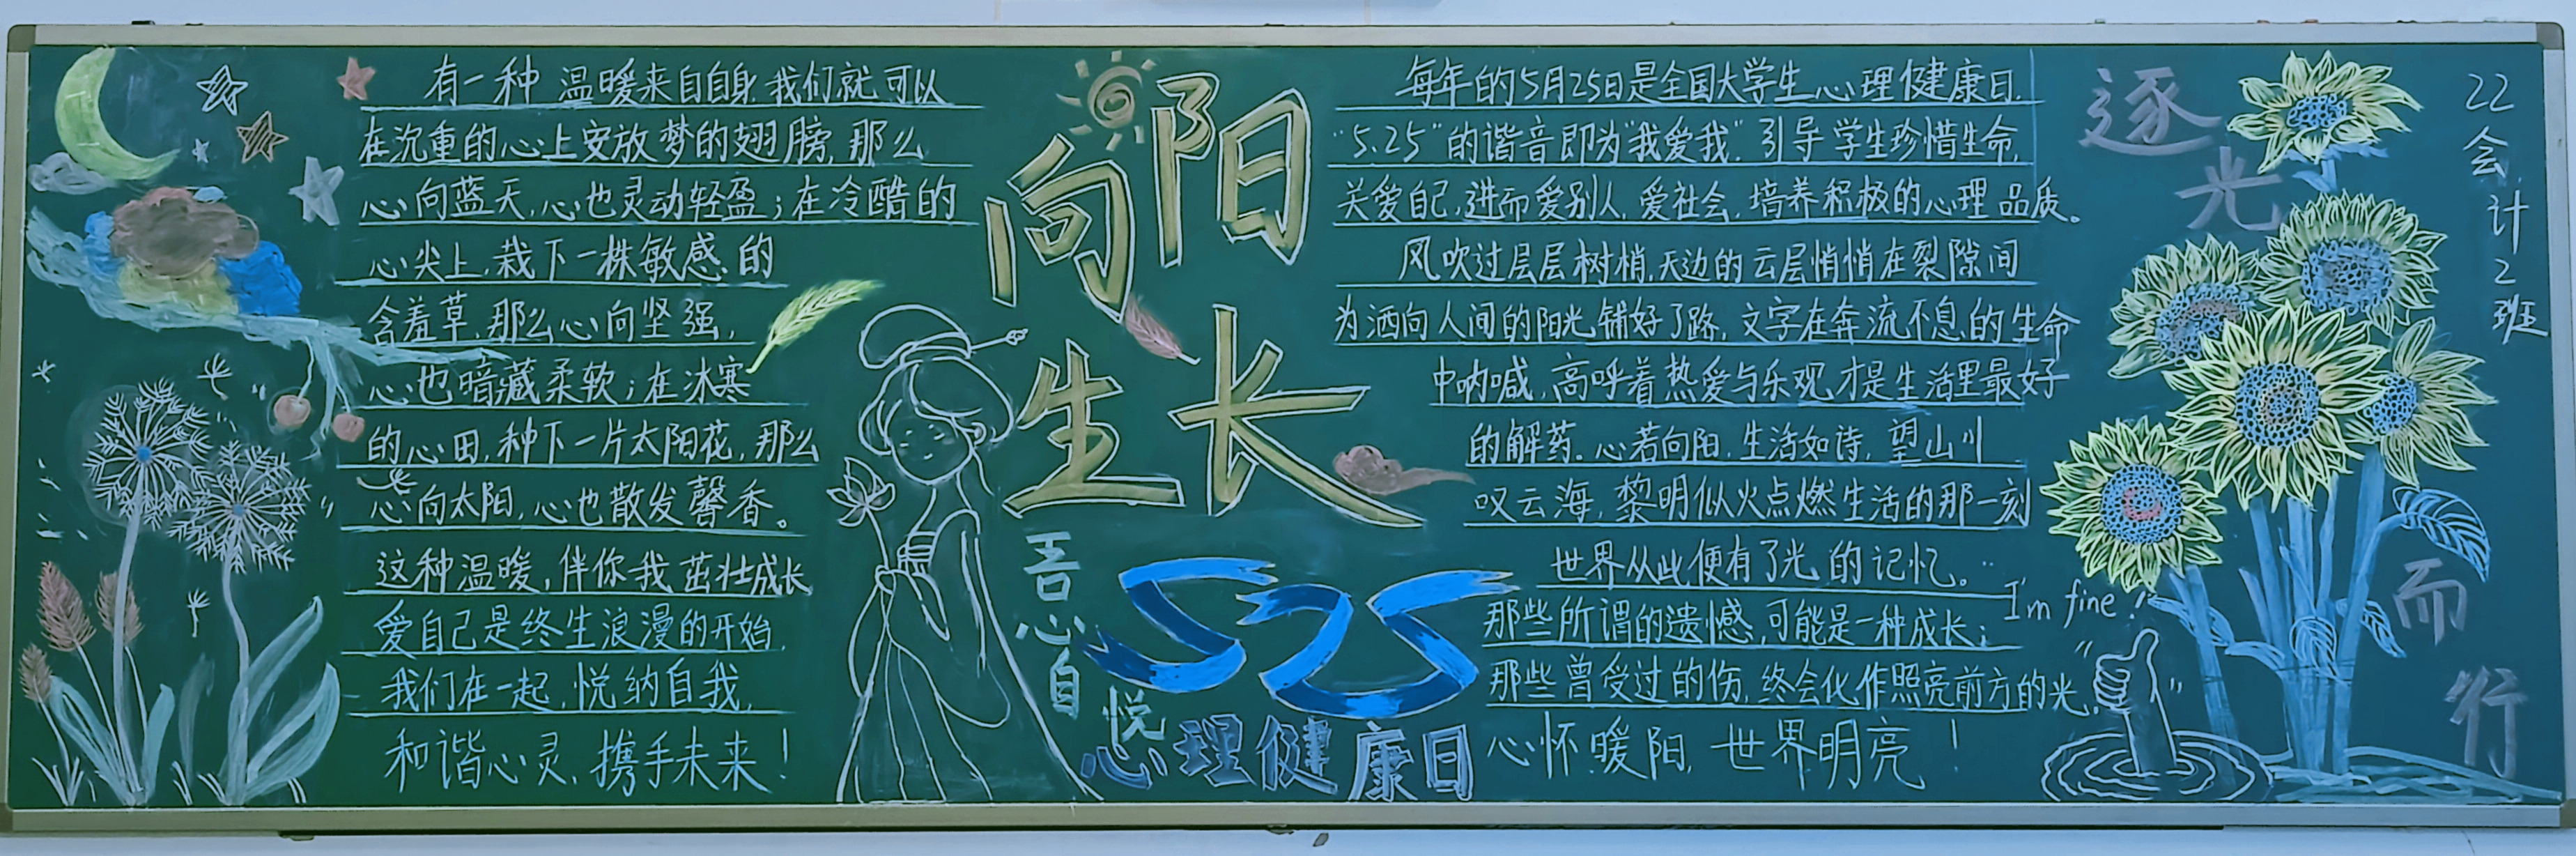 有一种温暖来自自身,我们就可以
在沉重的心上安放梦的翅膀,那么
心向蓝天,心也灵动轻盈;在冷酷的
心尖上,栽下一株敏感的
含羞草,那么心向坚强,
心也暗藏柔软;在冰寒
的心田,种下一片太阳花,那么
心向太阳,心也散发馨香。
这种温暖,伴你我茁壮成长
爱自己是终生浪漫的开始,
我们在一起,悦纳自我,
和谐心灵,携手未来!
向阳
生长
吾心自悦
525
心理健康日
每年的5月25日是全国大学生心理健康日.
“5.25”的谐音即为“我爱我”.引导学生珍惜生命,
关爱自己,进而爱别人,爱社会,培养积极的心理品质。
风吹过层层树梢,天边的云层悄悄在裂隙间
为洒向人间的阳光铺好了路,文字在奔流不息的生命
中呐喊,高呼着热爱与乐观才是生活里最好
的解药。心若向阳,生活如诗,望山川
叹云海,黎明似火点燃生活的那一刻
世界从此便有了光的记忆。
那些所谓的遗憾,可能是一种成长;
那些曾受过的伤,终会化作照亮前方的光,
心怀暖阳,世界明亮!
I'm fine!
逐光
而行
22会计2班